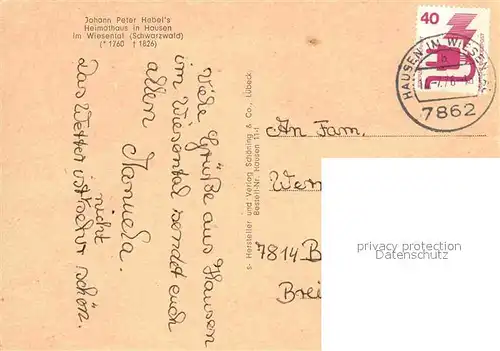 Johann Peter Hebel's
Heimathaus in Hausen
im Wiesental (Schwarzwald)
(* 1760 † 1826)
Viele Grüße aus Hausen
im Wiesental sendet euch
allen Manuela.
nicht
Das Wetter ist sehr schön.
s- Hersteller und Verlag Schöning & Co., Lübeck
Bestell-Nr. Hausen 11-I
40
HAUSEN IM WIESENTAL
7862
An Fam.
7814 B
Brei
privacy protection
Datenschutz